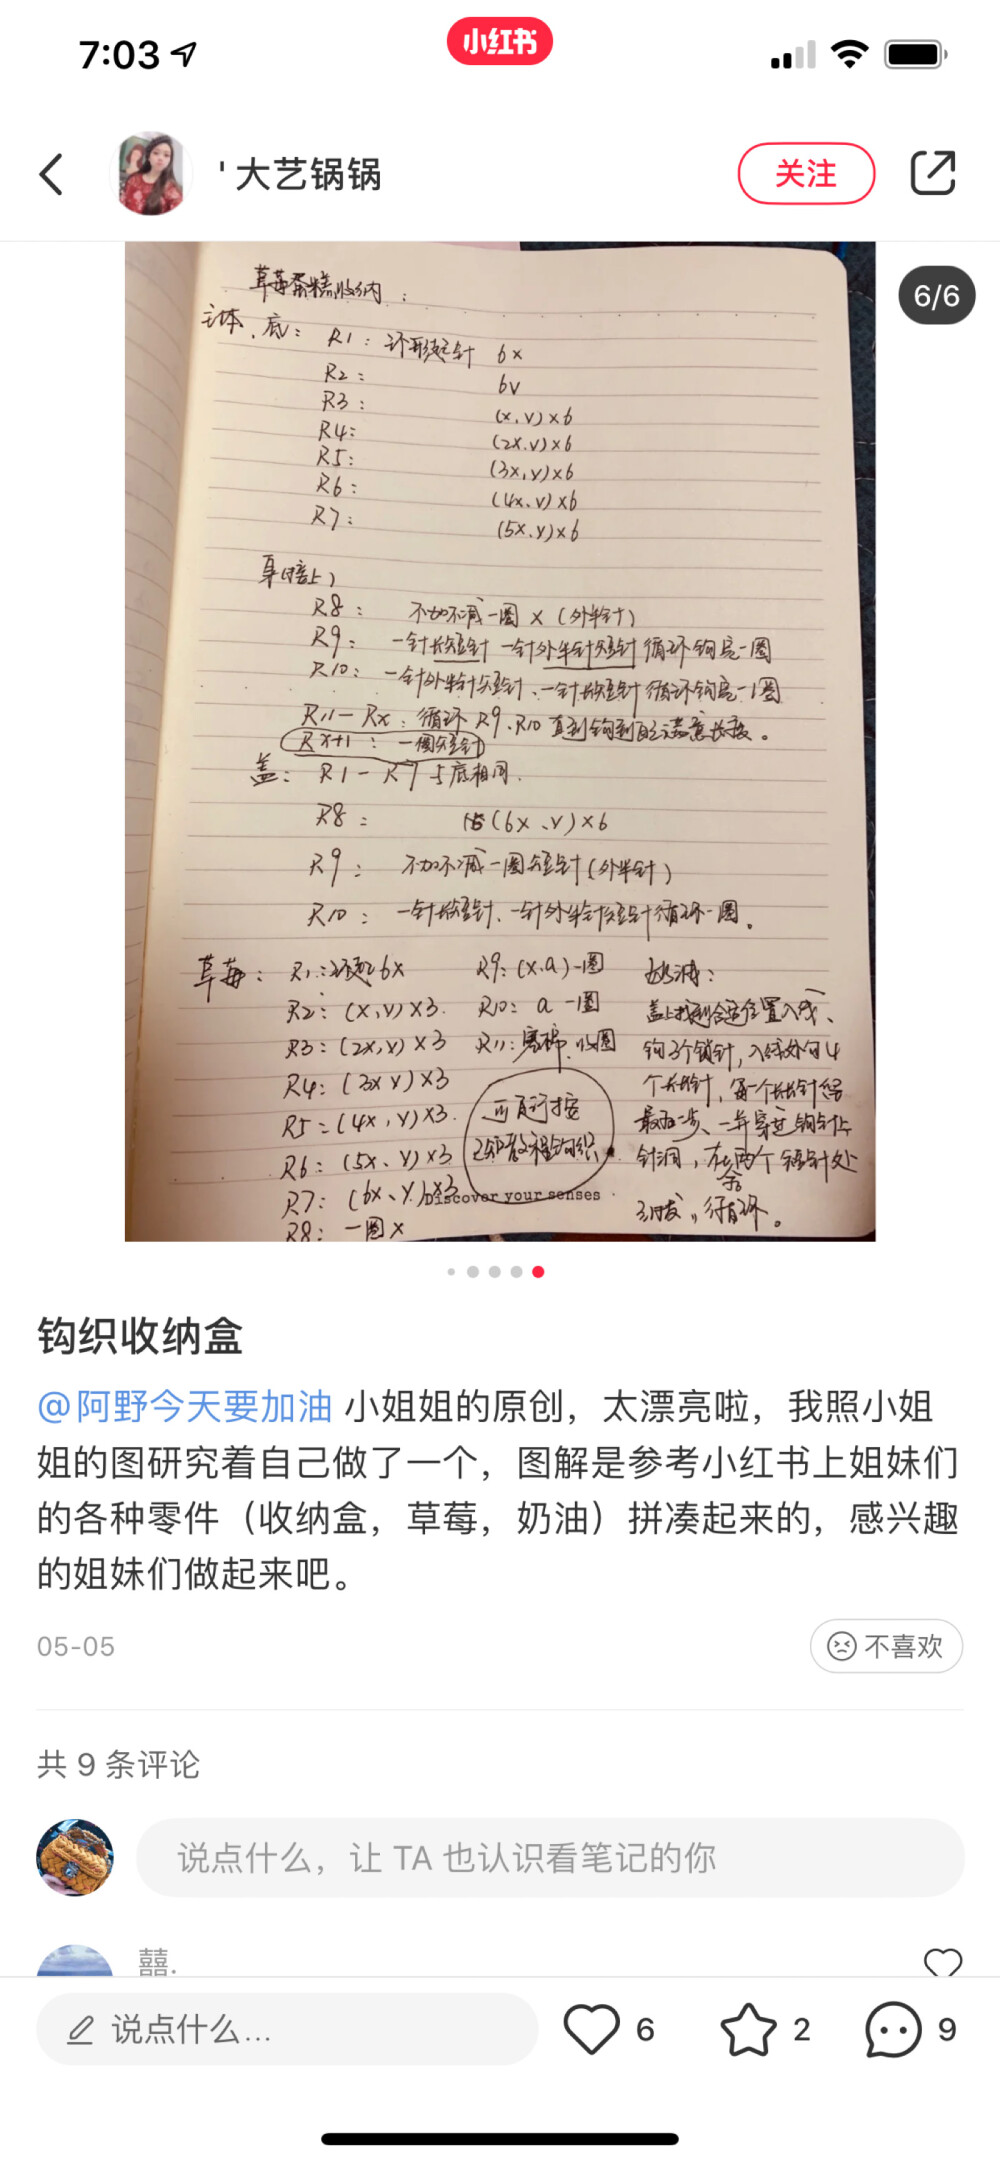 7:03
小红书
' 大艺锅锅
关注
6/6
草莓蛋糕收纳：
主体、底： R1：环形起针 6x
R2： 6v
R3： (x,v)×6
R4： (2x.v)×6
R5： (3x,v)×6
R6： (4x,v)×6
R7： (5x,v)×6
R8： 不加不减一圈 x (外半针)
R9： 一针长短针 一针外半针短针 循环钩完一圈
R10： 一针外半针短针、一针长短针 循环钩完一圈
R11—Rx：循环 R9、R10 直到钩到自己满意长度。
Rx+1：一圈短针
盖： R1—R7 与底相同.
R8： (6x、v)×6
R9： 不加不减一圈短针(外半针)
R10： 一针长短针、一针外半针短针循环一圈。
草莓： R1：环起6x R9：(x.a)一圈
R2： (x,v)×3. R10： a 一圈
R3： (2x,v)×3 R11：塞棉、收圈
R4： (3x v)×3
R5： (4x,v)×3.
R6： (5x、v)×3
R7： (6x、v)×3
R8： 一圈x
可自行按
钩织
Discover your senses
盖上找到合适位置入线、
钩3个锁针，入线处钩4
个长针，每一个长针留
最后一步、一并穿过钩针上
针洞，在两个短针处
循环。
钩织收纳盒
@阿野今天要加油 小姐姐的原创，太漂亮啦，我照小姐
姐的图研究着自己做了一个，图解是参考小红书上姐妹们
的各种零件（收纳盒，草莓，奶油）拼凑起来的，感兴趣
的姐妹们做起来吧。
05-05
不喜欢
共 9 条评论
说点什么，让 TA 也认识看笔记的你
囍.
说点什么...
6
2
9